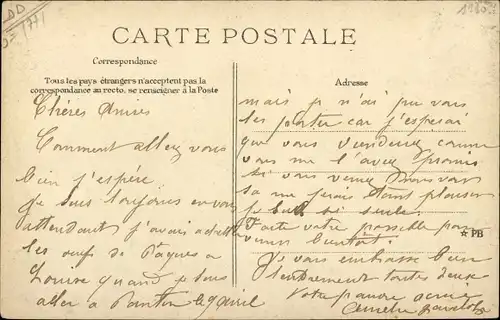 CARTE POSTALE
Correspondance
Tous les pays étrangers n'acceptent pas la
correspondance au recto, se renseigner à la Poste
Chères Amies
Comment allez vous
bien j'espère
je suis toujours en vous
attendant j'avais acheté
les oeufs de Pâques a
Louise quand je suis
aller a Pantin le 9 avril
Adresse
mais je n'ai pu vous
les porter car j'esperai
que vous viendriez comme
vous me l'avez promis
si vous venez me voir
sa me ferais tant plaisir
je suis si seule.
Faite votre possible pour
venir bientôt.
PB
Je vous embrasse bien
tendrement toutes deux
Votre pauvre amie